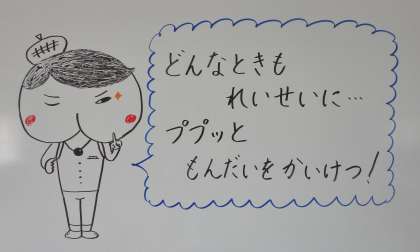 どんなときも
れいせいに…
ププッと
もんだいをかいけつ!